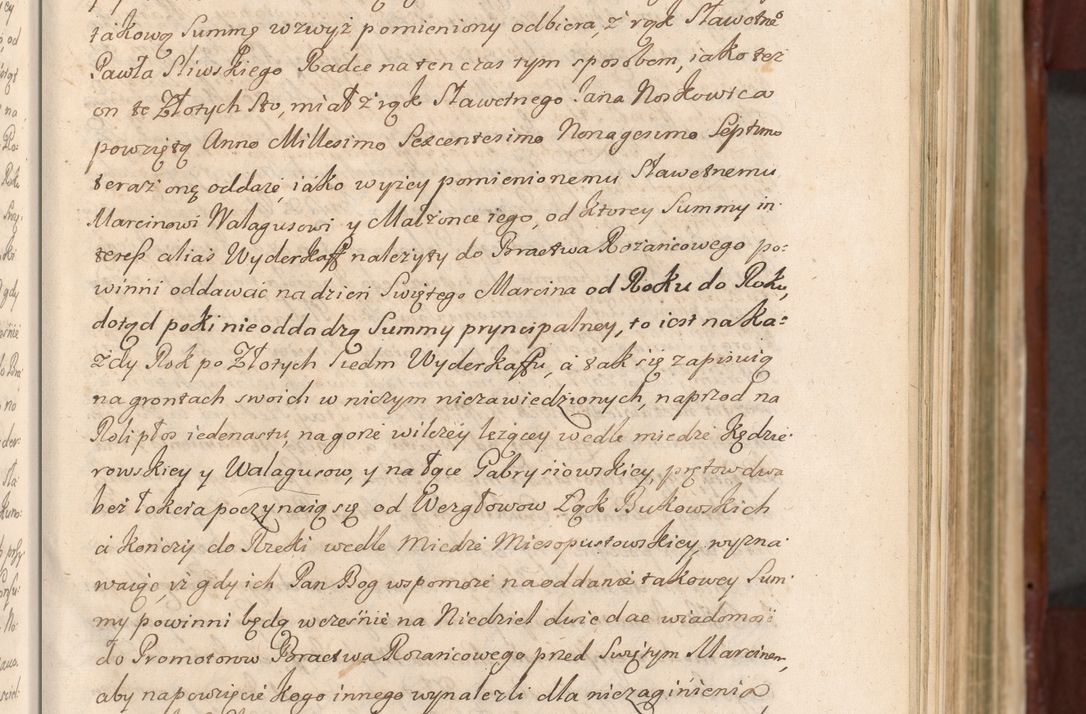 takową Summę wzwyż pomieniony odbiera, z rąk Sławetne°
Pawła Sliwskiego Radce na ten czas tym sposobem, iako też
on te Złotych Sto, miał z rąk Sławetnego Jana Noskowica
powziętą Anno Millesimo Sexcentesimo Nonagesimo Septimo
teraz onę oddaię, iako wyżey pomienionemu Sławetnemu
Marcinowi Walagusowi y Małżonce iego, od ktorey Summy in-
teress alias Wyderkaff nalezyty do Bractwa Rozańcowego po-
winni oddawać na dzień Swiętego Marcina od Roku do Roku,
dotąd poki nie oddadzą Summy pryncipalney, to iest na Ka-
żdy Rok po Złotych Siedm Wyderkaffu, a tak się zapisuią
na grontach swoich w niczym niezawiedzionych, naprzod na
Roli płos iedenastu, na gorze wilczey leżącey wedle miedze Kędzie-
rowskiey y Walagusow, y na łące Gabrysiowskiey, prętow dwa
bez łokcia poczynaią się od Wezgłowow Łąk Bukowskich
a kończy do Rzeki wedle Miedze Miesopustowskiey, wyzna-
waiąc, iż gdy ich Pan Bog wspomoże na oddanie takowey Sum-
my powinni będą wcześnie na Niedziel dwie dac wiadomość
do Promotorow Bractwa Rozańcowego przed Swiętym Marcinem,
aby na powzięcie kogo innego wynalezli dla niezaginienia